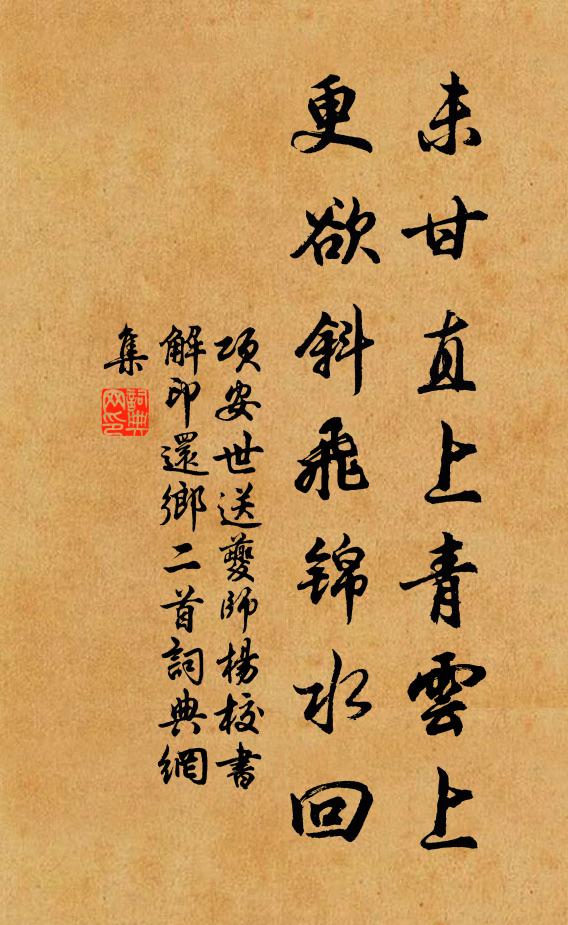 未甘直上青雲上
更欲斜飛錦水回
項安世送夔師楊校書
解印還鄉二首詞典網
集
詞典
网印